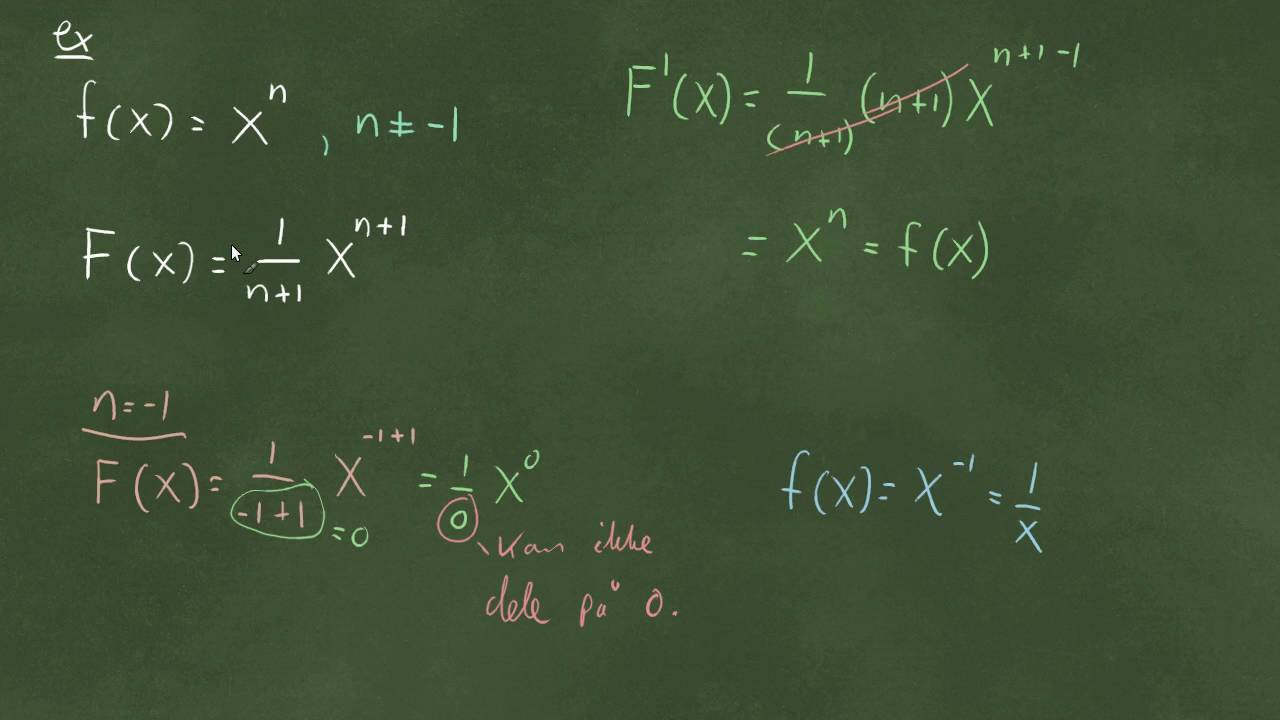 ex
f(x) = xⁿ , n ≠ -1
F(x) = 1/(n+1) xⁿ⁺¹
F'(x) = 1/(n+1) (n+1) xⁿ⁺¹⁻¹
= xⁿ = f(x)
n = -1
F(x) = 1/(-1+1) x⁻¹⁺¹ = 1/0 x⁰
= 0
kan ikke
dele på 0.
f(x) = x⁻¹ = 1/x